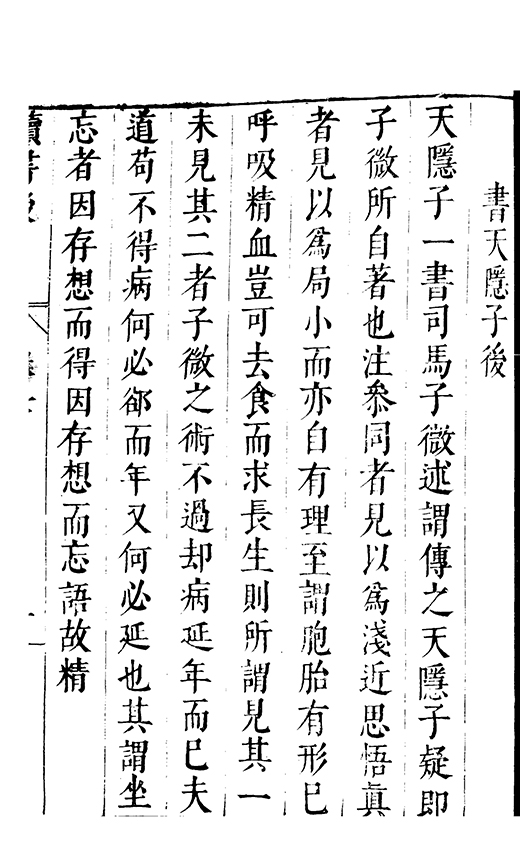 書天隱子後
天隱子一書司馬子微述謂傳之天隱子疑即
子微所自著也注叅同者見以爲淺近思悟眞
者見以爲局小而亦自有理至謂胞胎有形巳
呼吸精血豈可去食而求長生則所謂見其一
未見其二者子微之術不過却病延年而巳夫
道苟不得病何必郤而年又何必延也其謂坐
忘者因存想而得因存想而忘語故精
讀書後